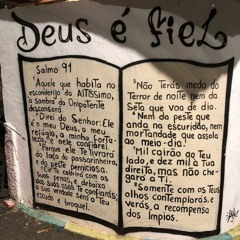 Deus é fiel
Salmo 91
¹Aquele que habita no
esconderijo do ALTÍSSIMO,
a sombra do Onipotente
descansará.
²Direi do Senhor: Ele
é o meu Deus, o meu
refúgio, a minha forta-
leza, e nele confiarei.
³Porque ele te livrará
do laço do passarinheiro,
e da peste perniciosa.
⁴Ele te cobrirá com as
suas penas, e debaixo
das suas asas te confiarás;
a sua verdade será o teu
escudo e broquel.
⁵Não Terás medo do
Terror de noite nem da
Seta que voa de dia.
⁶Nem da peste que
anda na escuridão, nem
mortandade que assola
ao meio-dia.
⁷Mil cairão ao Teu
lado, e dez mil à Tua
direita, mas não che-
gará a Ti.
⁸Somente com os Teus
olhos contemplarás, e
verás, a recompensa
dos ímpios.